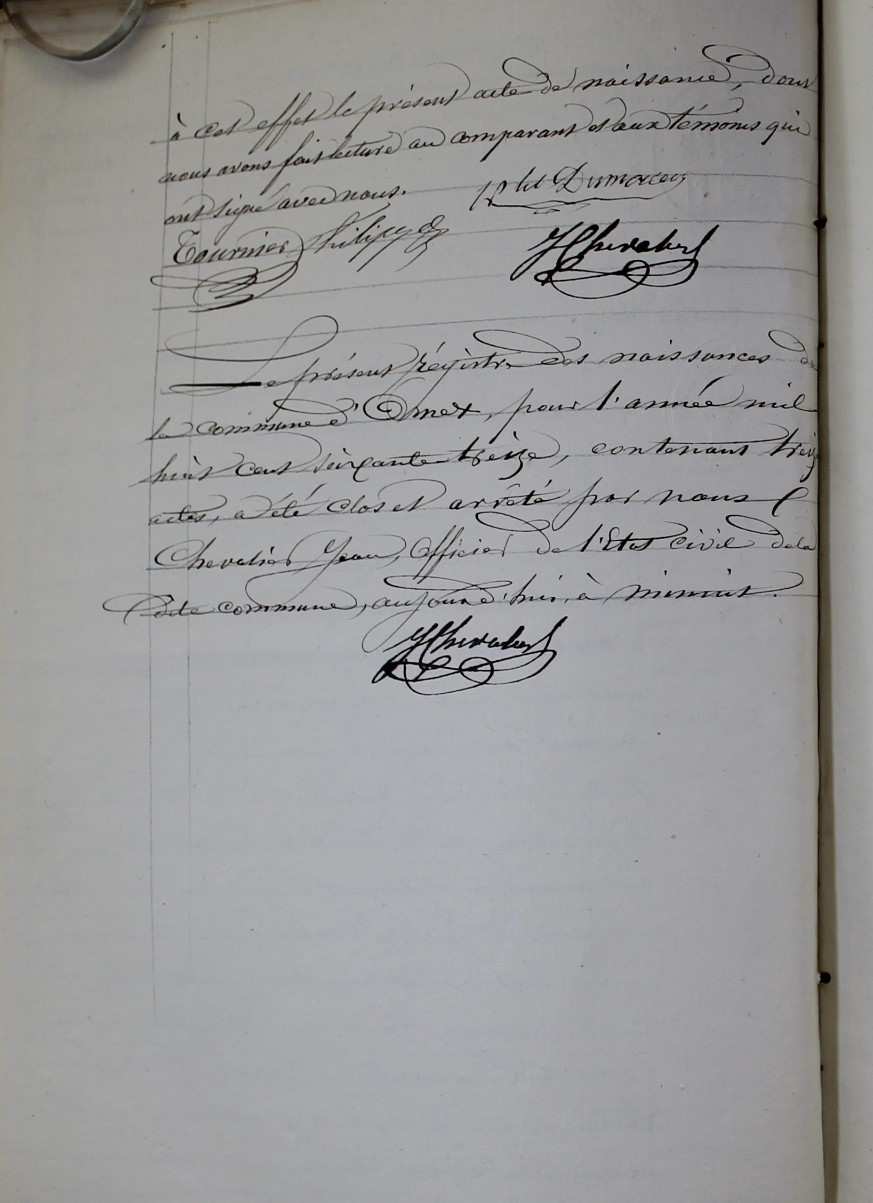 à cet effet le présent acte de naissance, dont
nous avons fait lecture au comparant et aux témoins qui
ont signé avec nous.
Dumo
Tournier Philippe JChevalier
Le présent régistre des naissances de
la commune d'Omet, pour l'année mil
huit cent soixante treize, contenant treize
actes, a été clos et arrêté par nous
Chevalier Jean, Officier de l'Etat civil de la
dite commune, aujourd'hui, à minuit.
JChevalier